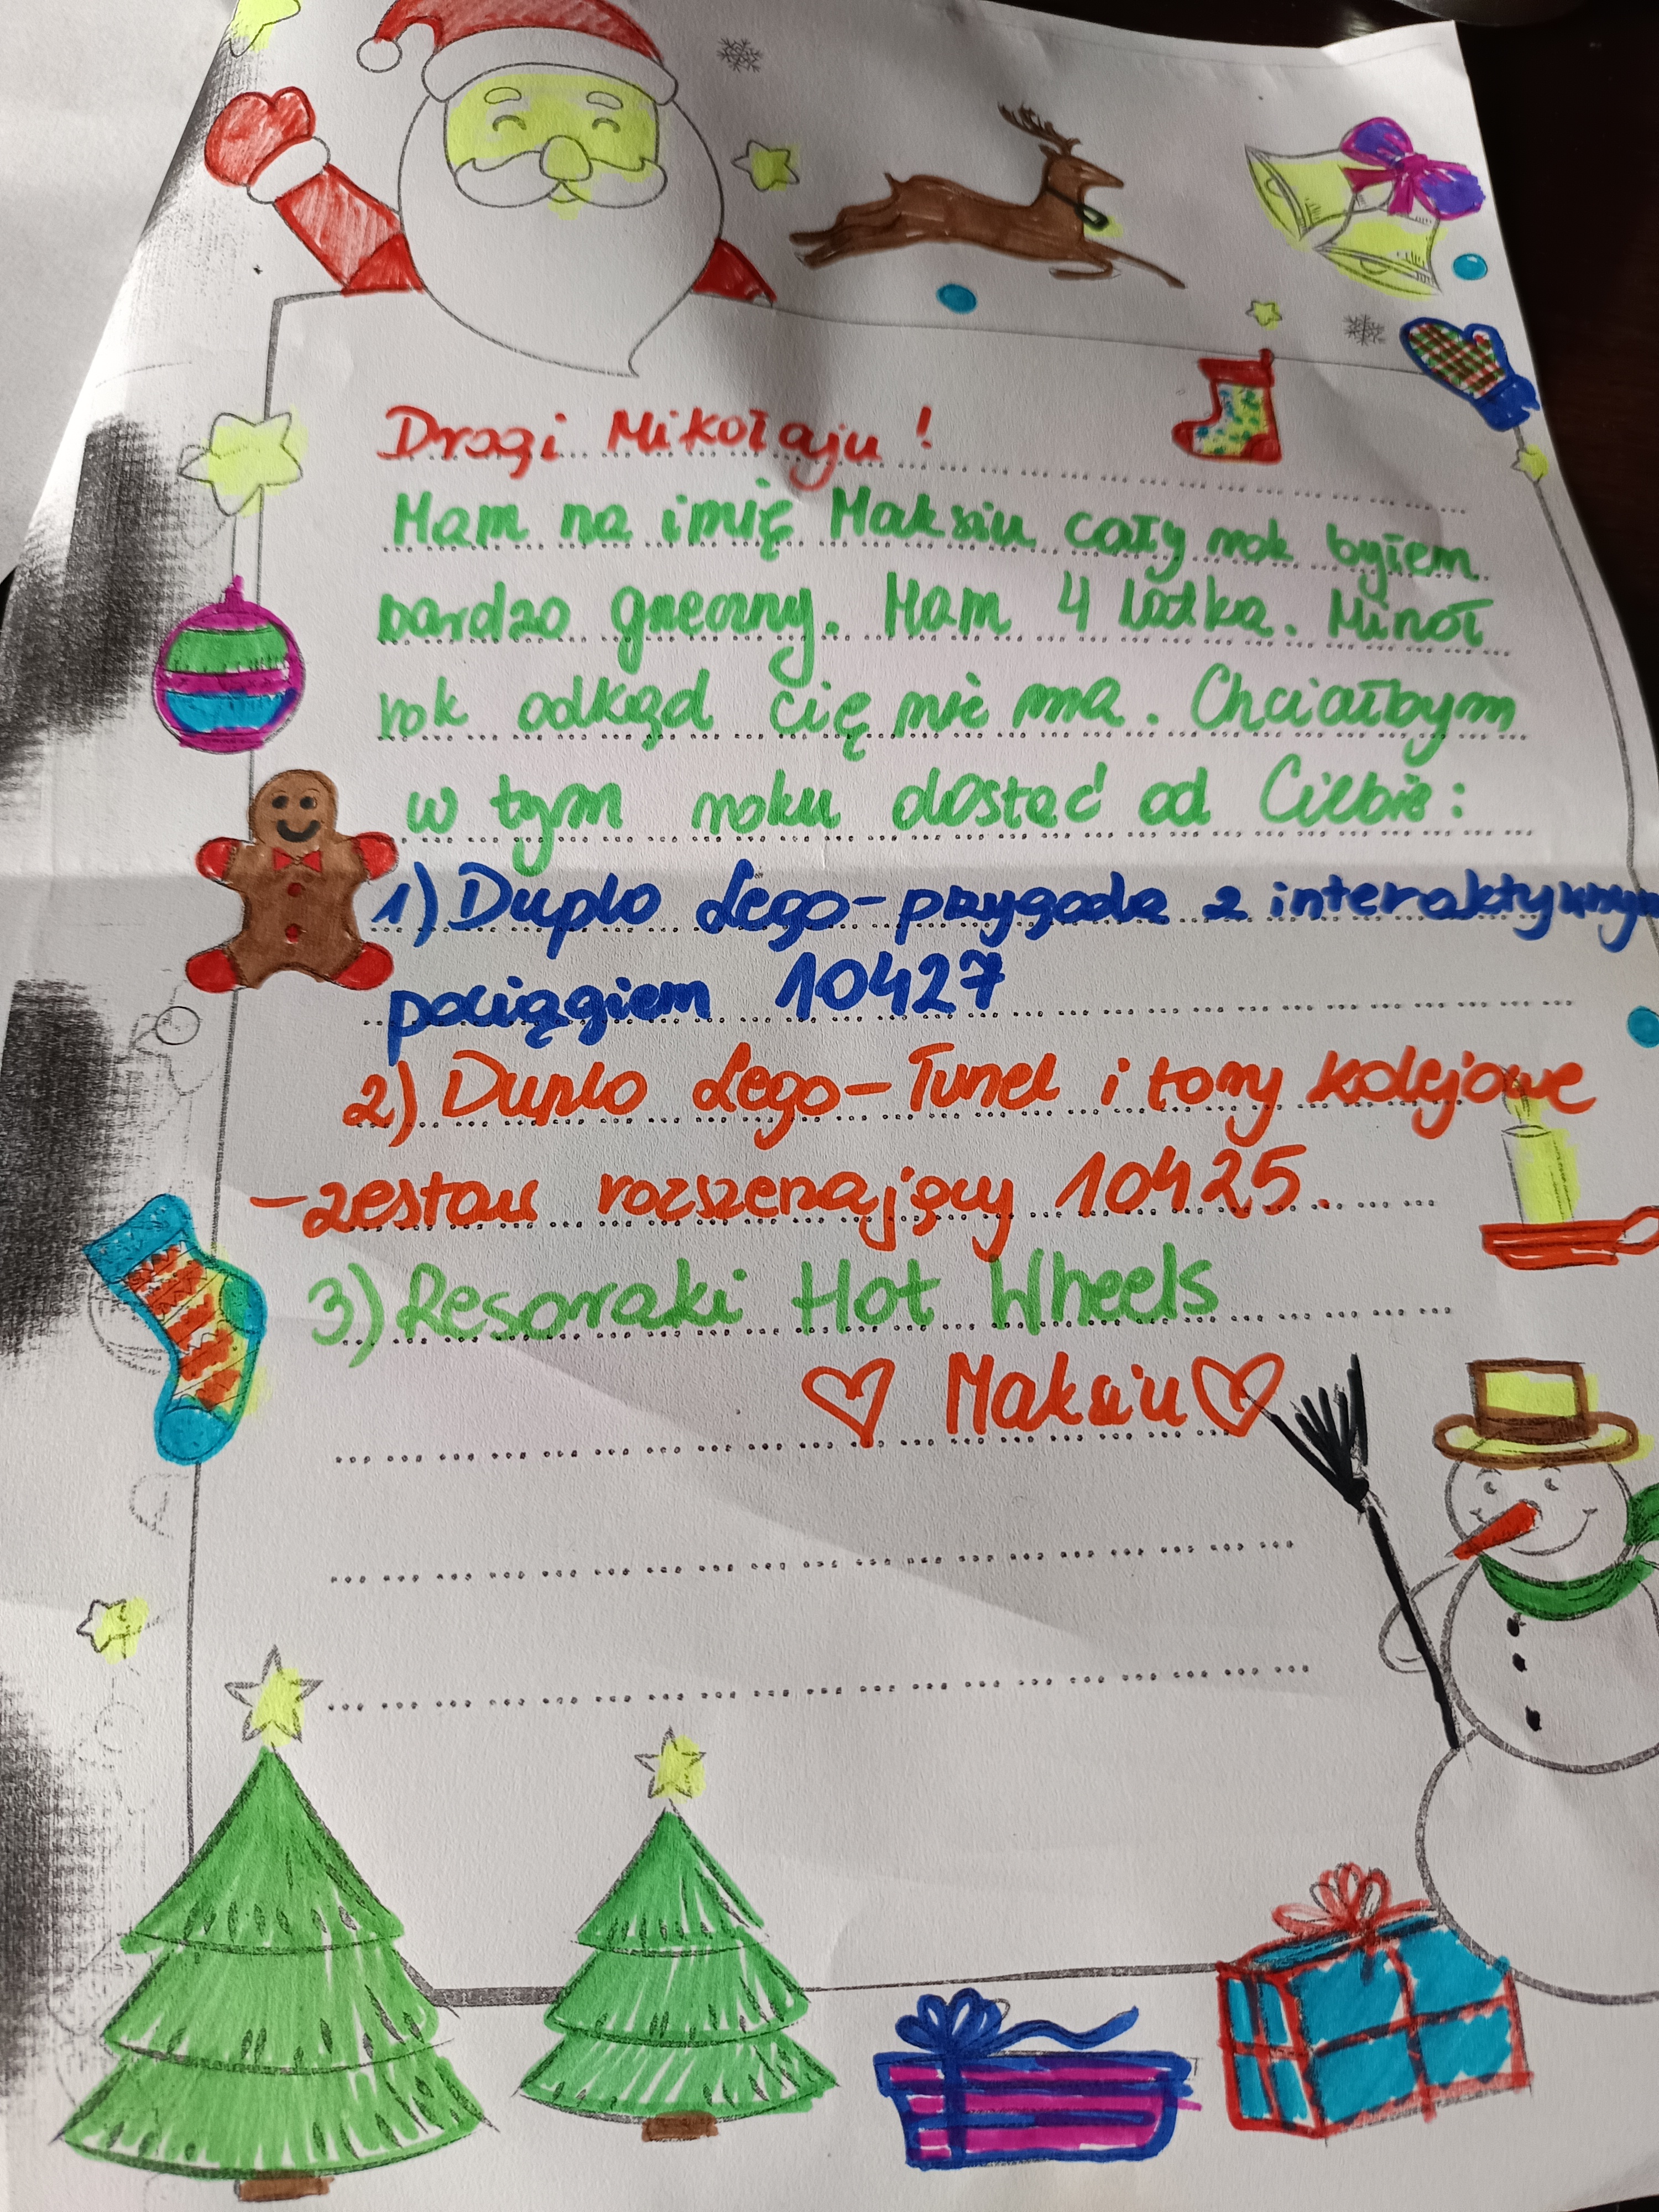 Drogi Mikołaju!
Mam na imię Maksiu cały rok byłem
bardzo grzeczny. Mam 4 latka. Minął
rok odkąd cię nie ma. Chciałbym
w tym roku dostać od Ciebie:
1) Duplo Lego-przygoda z interaktywnym
pociągiem 10427
2) Duplo Lego-Tunel i tory kolejowe
-zestaw rozszerzający 10425.
3) Resoraki Hot Wheels
Maksiu